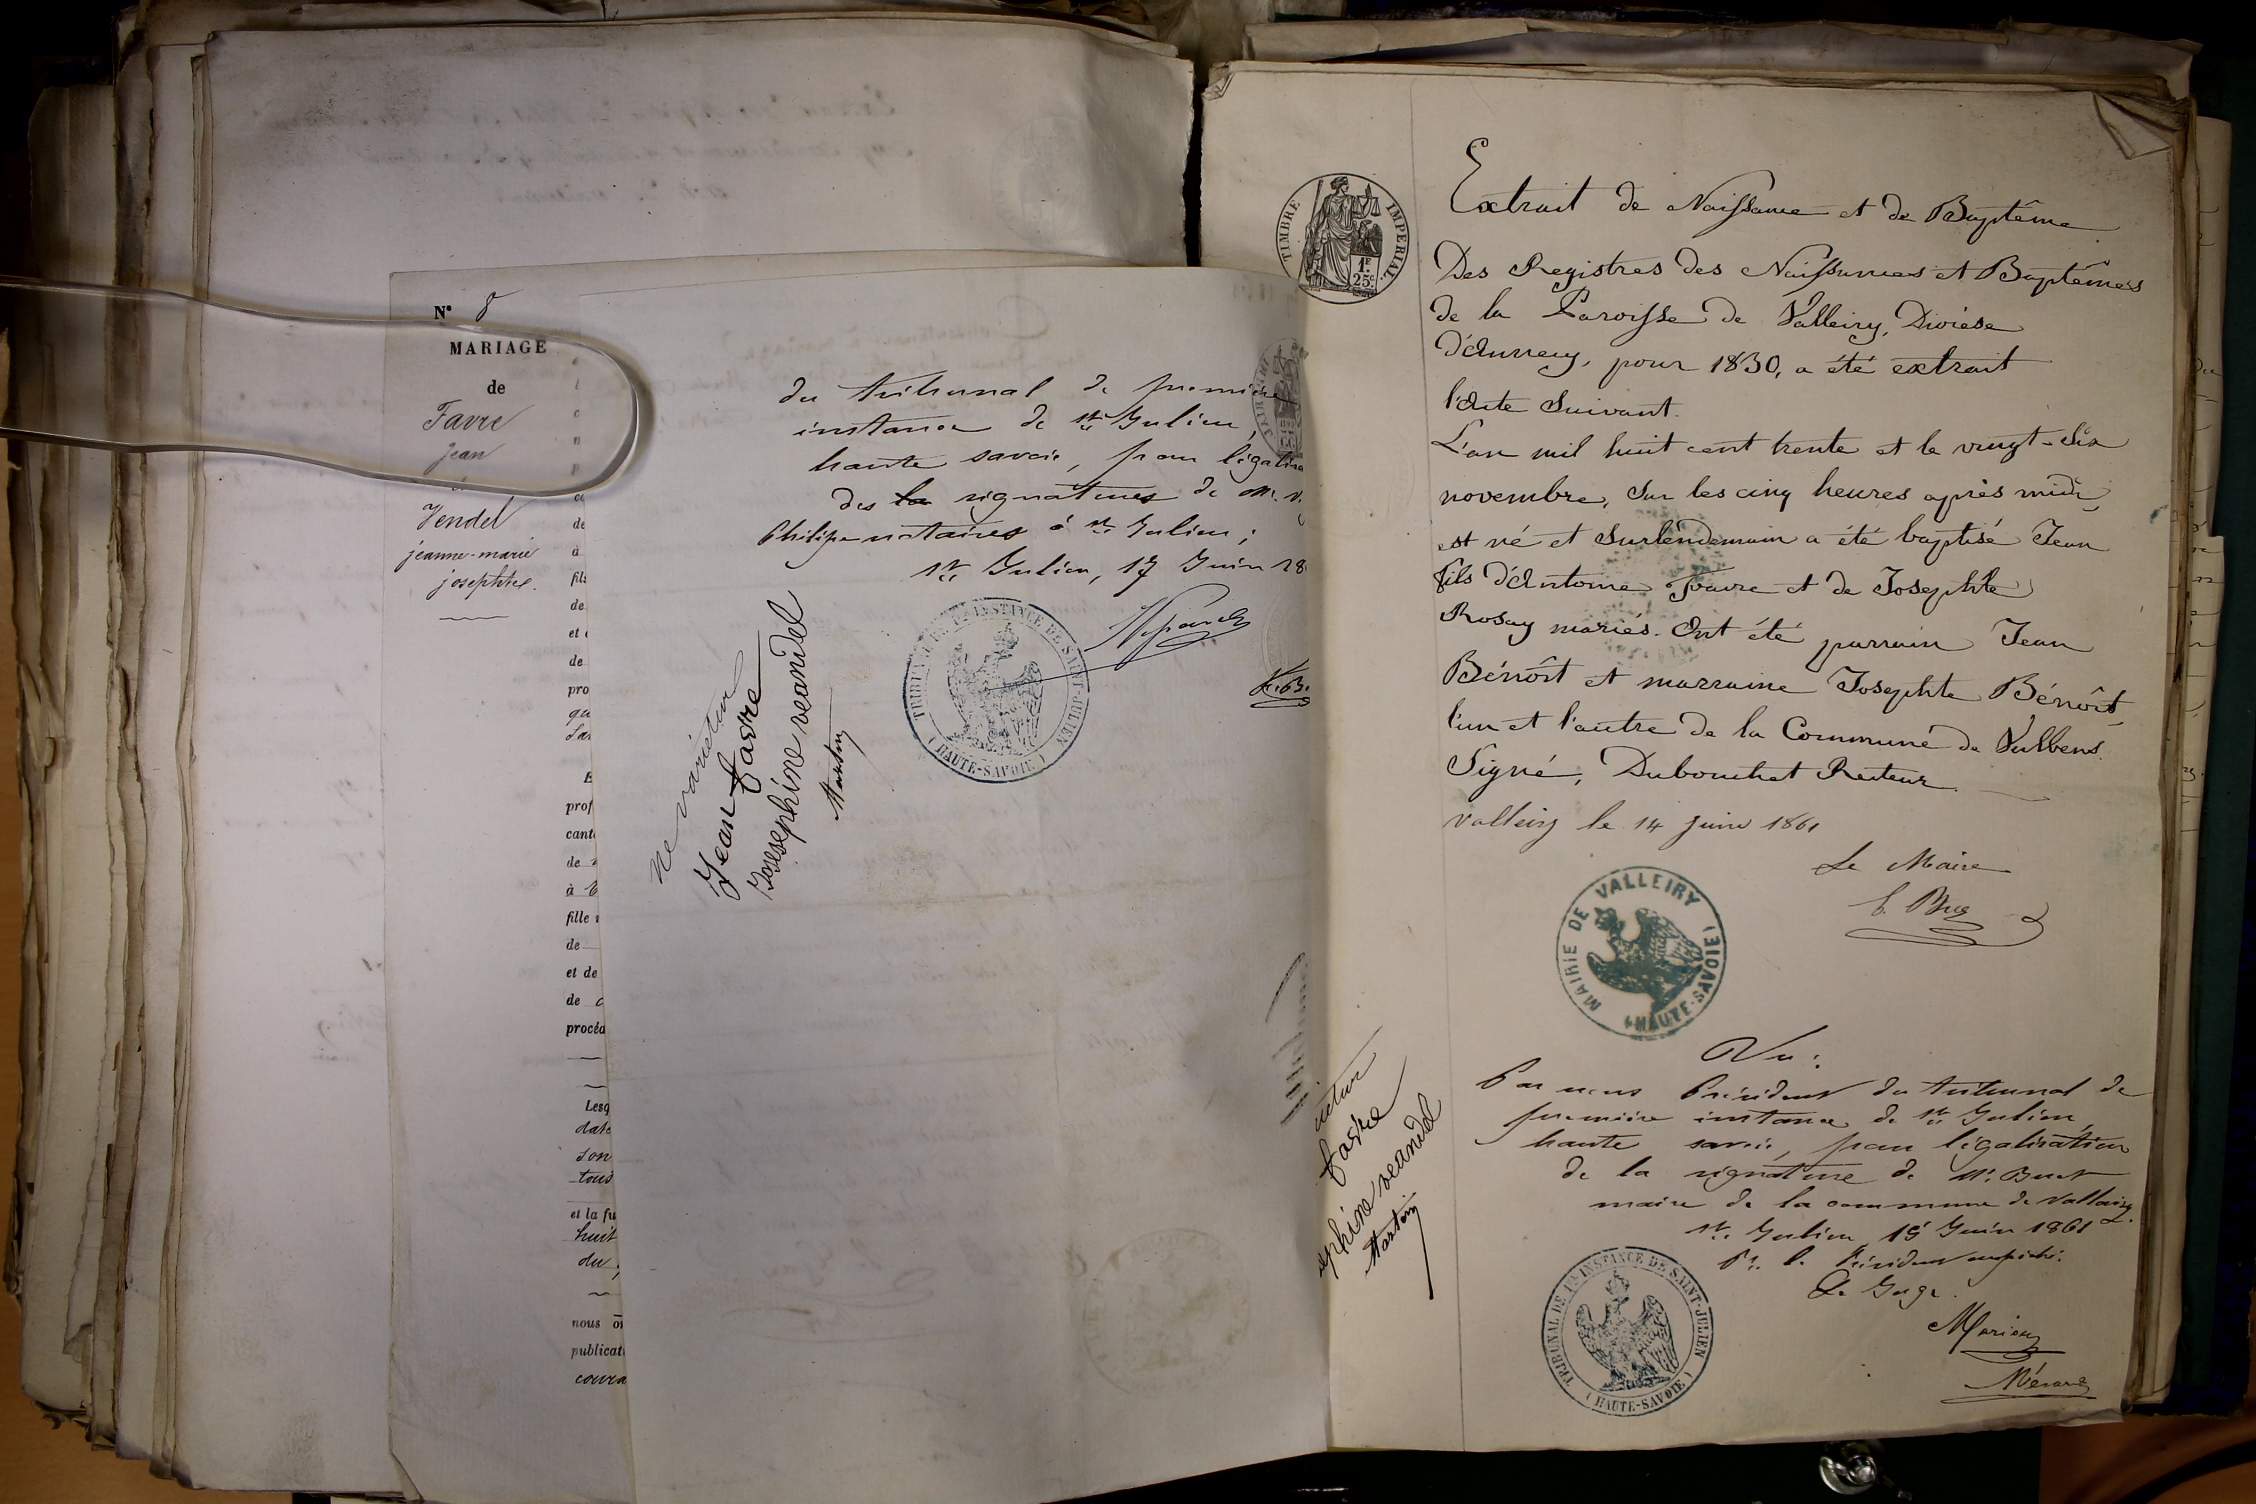 N° 8
MARIAGE
de
Favre
jean
Vendel
jeanne-marie
josephte.
de
à
fils
de
et
de
pro
qu
prof
cant
de
à
fille
de
et de
de
procéd
Lesq
date
son
tous
et la fu
huit
du
nous
publicat
coura
du tribunal de première
instance de St Julien,
haute savoie, pour légalisa
des la signatures de
Philippe notaires à St Julien;
St Julien, 17 Juin 18
TRIBUNAL DE 1RE INSTANCE DE SAINT-JULIEN
(HAUTE-SAVOIE)
Ne varietur
Jean favre
Josesephine veandel
Martin
TIMBRE IMPERIAL.
1F
25C
Extrait de Naissance et de Baptême
Des Registres des Naissances et Baptêmes
de la Paroisse de Valleiry, Diocèse
d'Annecy, pour 1830, a été extrait
l'Acte Suivant.
L'an mil huit cent trente et le vingt-six
novembre, sur les cinq heures après midi,
est né et surlendemain a été baptisé Jean
fils d'Antoine Favre et de Josephte
Rosay mariés. Ont été parrain Jean
Bénoît et marraine Josephte Bénoît,
l'un et l'autre de la Commune de Vulbens.
Signé, Dubouchet Recteur.
Valleiry le 14 Juin 1861
Le Maire
MAIRIE DE VALLEIRY
(HAUTE-SAVOIE)
Vu:
Par nous Président du tribunal de
première instance de St Julien,
haute savoie, pour légalisation
de la signature de Mr. Buet
maire de la commune de Valleiry.
St. Julien, 15 Juin 1861
Pr. le Président empêché.
Le Juge.
TRIBUNAL DE 1RE INSTANCE DE SAINT-JULIEN
(HAUTE-SAVOIE)
ietur
favre
sephine veandel
Martin